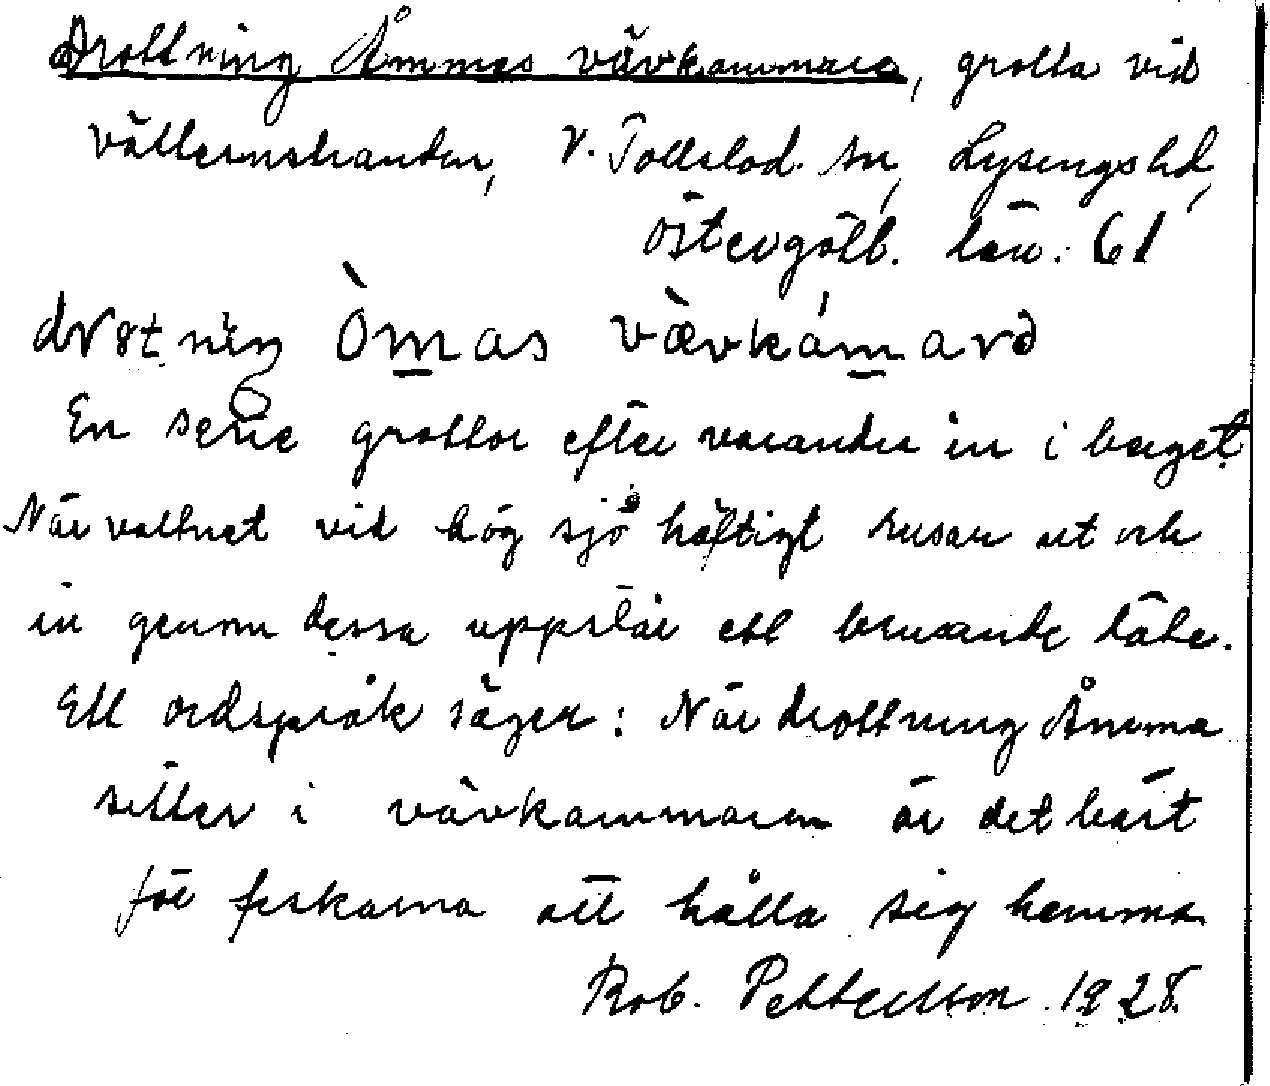 Drottning Åmmas vävkammare, grotta vid
vätternstranden, V. Tollstad sn, Lysings hd,
Östergötl. län. 61
drotniŋ òmas vævkámarə
En serie grottor efter varandra in i berget.
När vattnet vid hög sjö häftigt rusar ut och
in genom dessa uppstår ett brusande läte.
Ett ordspråk säger: När drottning Åmma
sitter i vävkammaren är det bäst
för fiskarna att hålla sig hemma.
Rob. Pettersson. 1928.